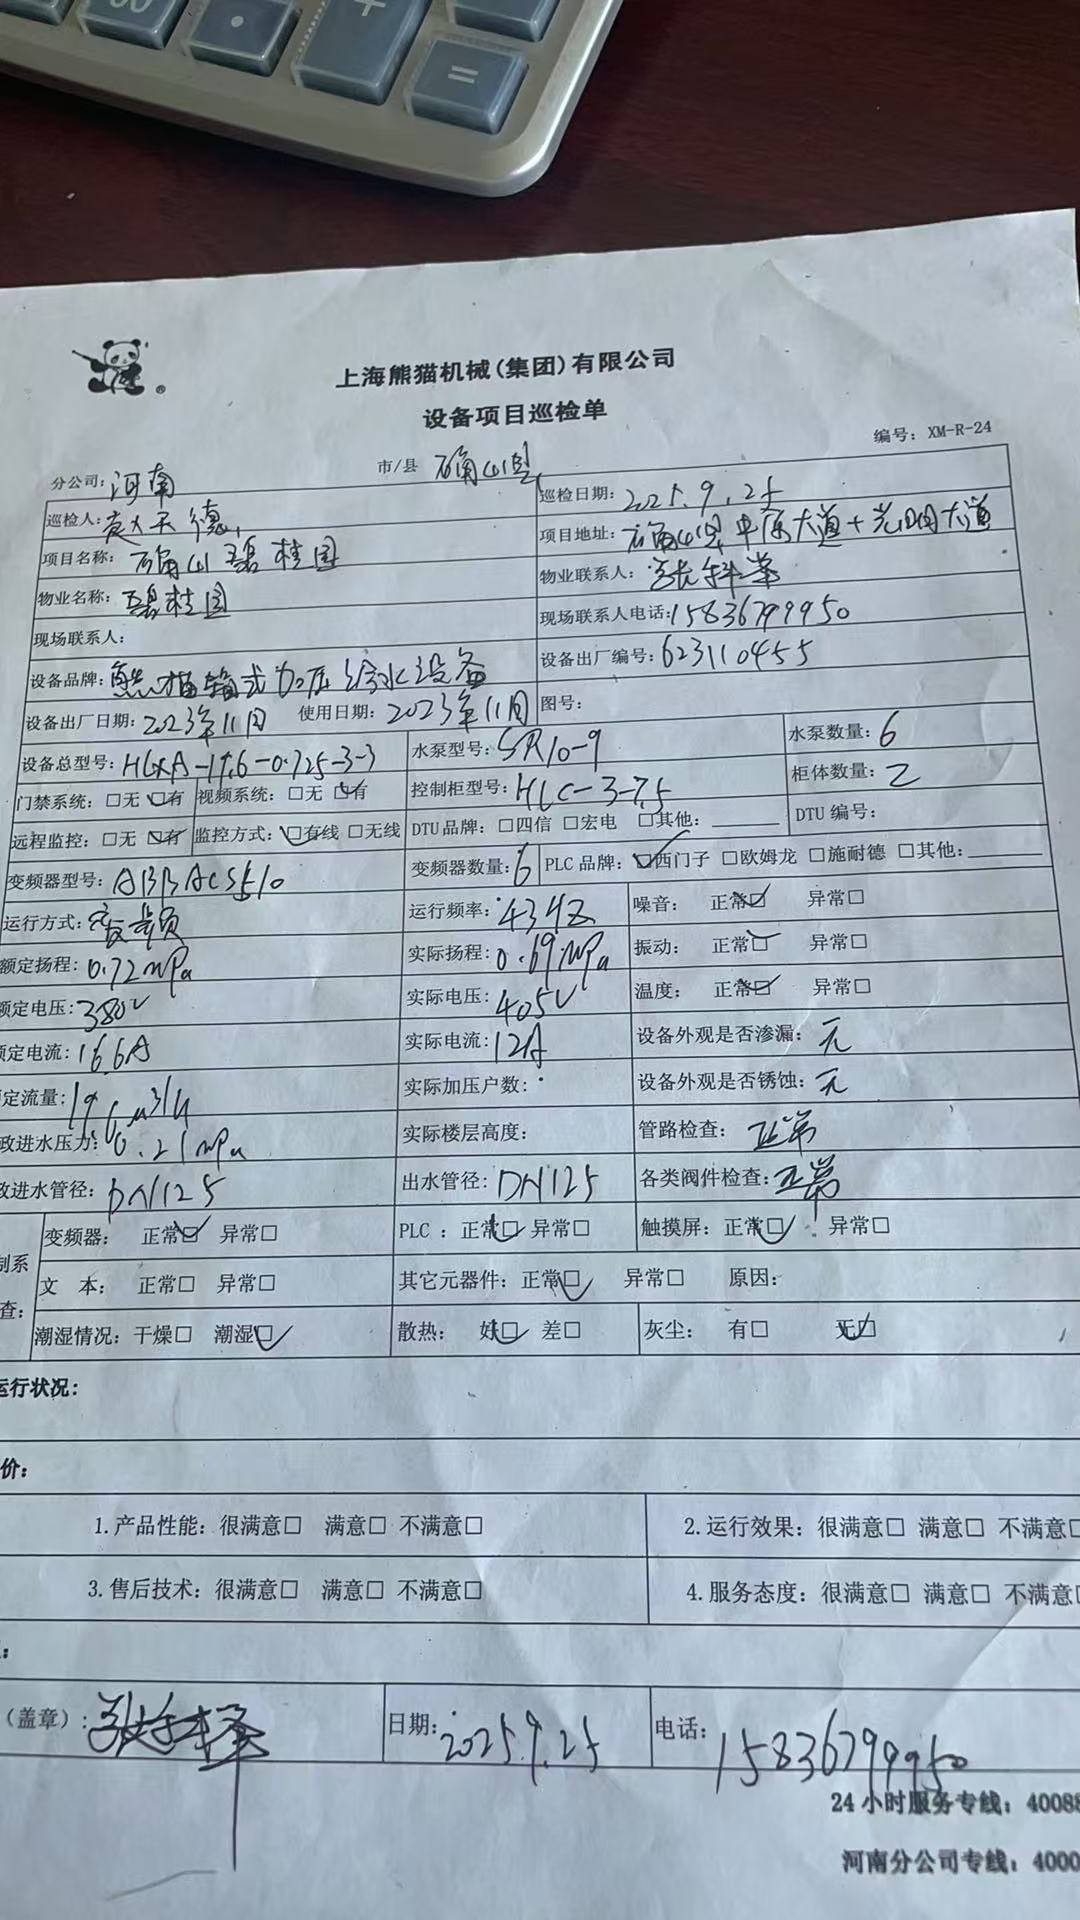 =
上海熊猫机械(集团)有限公司
设备项目巡检单
编号: XM-R-24
分公司: 河南 市/县 确山县
巡检人: 天德 巡检日期: 2025.9.25
项目名称: 确山碧桂园 项目地址: 确山县中原大道+ 大道
物业名称: 碧桂园 物业联系人:
现场联系人: 现场联系人电话: 15836799950
设备品牌: 熊猫箱式加压给水设备 设备出厂编号: 623110455
设备出厂日期: 2023年11月 使用日期: 2023年11月 图号:
设备总型号: HLXA-19.6-0.725-3-3 水泵型号: SR10-9 水泵数量: 6
门禁系统: □无 ☑有 视频系统: □无 ☑有 控制柜型号: HLC-3-7.5 柜体数量: 2
远程监控: □无 ☑有 监控方式: ☑有线 □无线 DTU品牌: □四信 □宏电 □其他: DTU 编号:
变频器型号: ABBACS510 变频器数量: 6 PLC 品牌: ☑西门子 □欧姆龙 □施耐德 □其他:
运行方式: 变频 运行频率: 43HZ 噪音: 正常☑ 异常□
额定扬程: 0.72MPa 实际扬程: 0.69MPa 振动: 正常☑ 异常□
额定电压: 380V 实际电压: 405V 温度: 正常☑ 异常□
额定电流: 16.6A 实际电流: 12A 设备外观是否渗漏: 无
定流量: 19.6m3/H 实际加压户数: 设备外观是否锈蚀: 无
政进水压力: 0.21MPa 实际楼层高度: 管路检查: 正常
政进水管径: DN125 出水管径: DN125 各类阀件检查: 正常
变频器: 正常☑ 异常□ PLC : 正常☑ 异常□ 触摸屏: 正常☑ 异常□
制系
文 本: 正常□ 异常□ 其它元器件: 正常☑ 异常□ 原因:
查:
潮湿情况: 干燥□ 潮湿☑ 散热: 好☑ 差□ 灰尘: 有□ 无☑
运行状况:
价:
1.产品性能: 很满意□ 满意□ 不满意□ 2.运行效果: 很满意□ 满意□ 不满意□
3.售后技术: 很满意□ 满意□ 不满意□ 4.服务态度: 很满意□ 满意□ 不满意□
(盖章): 日期: 2025.9.25 电话: 15836799950
24 小时服务专线: 40088
河南分公司专线: 4000